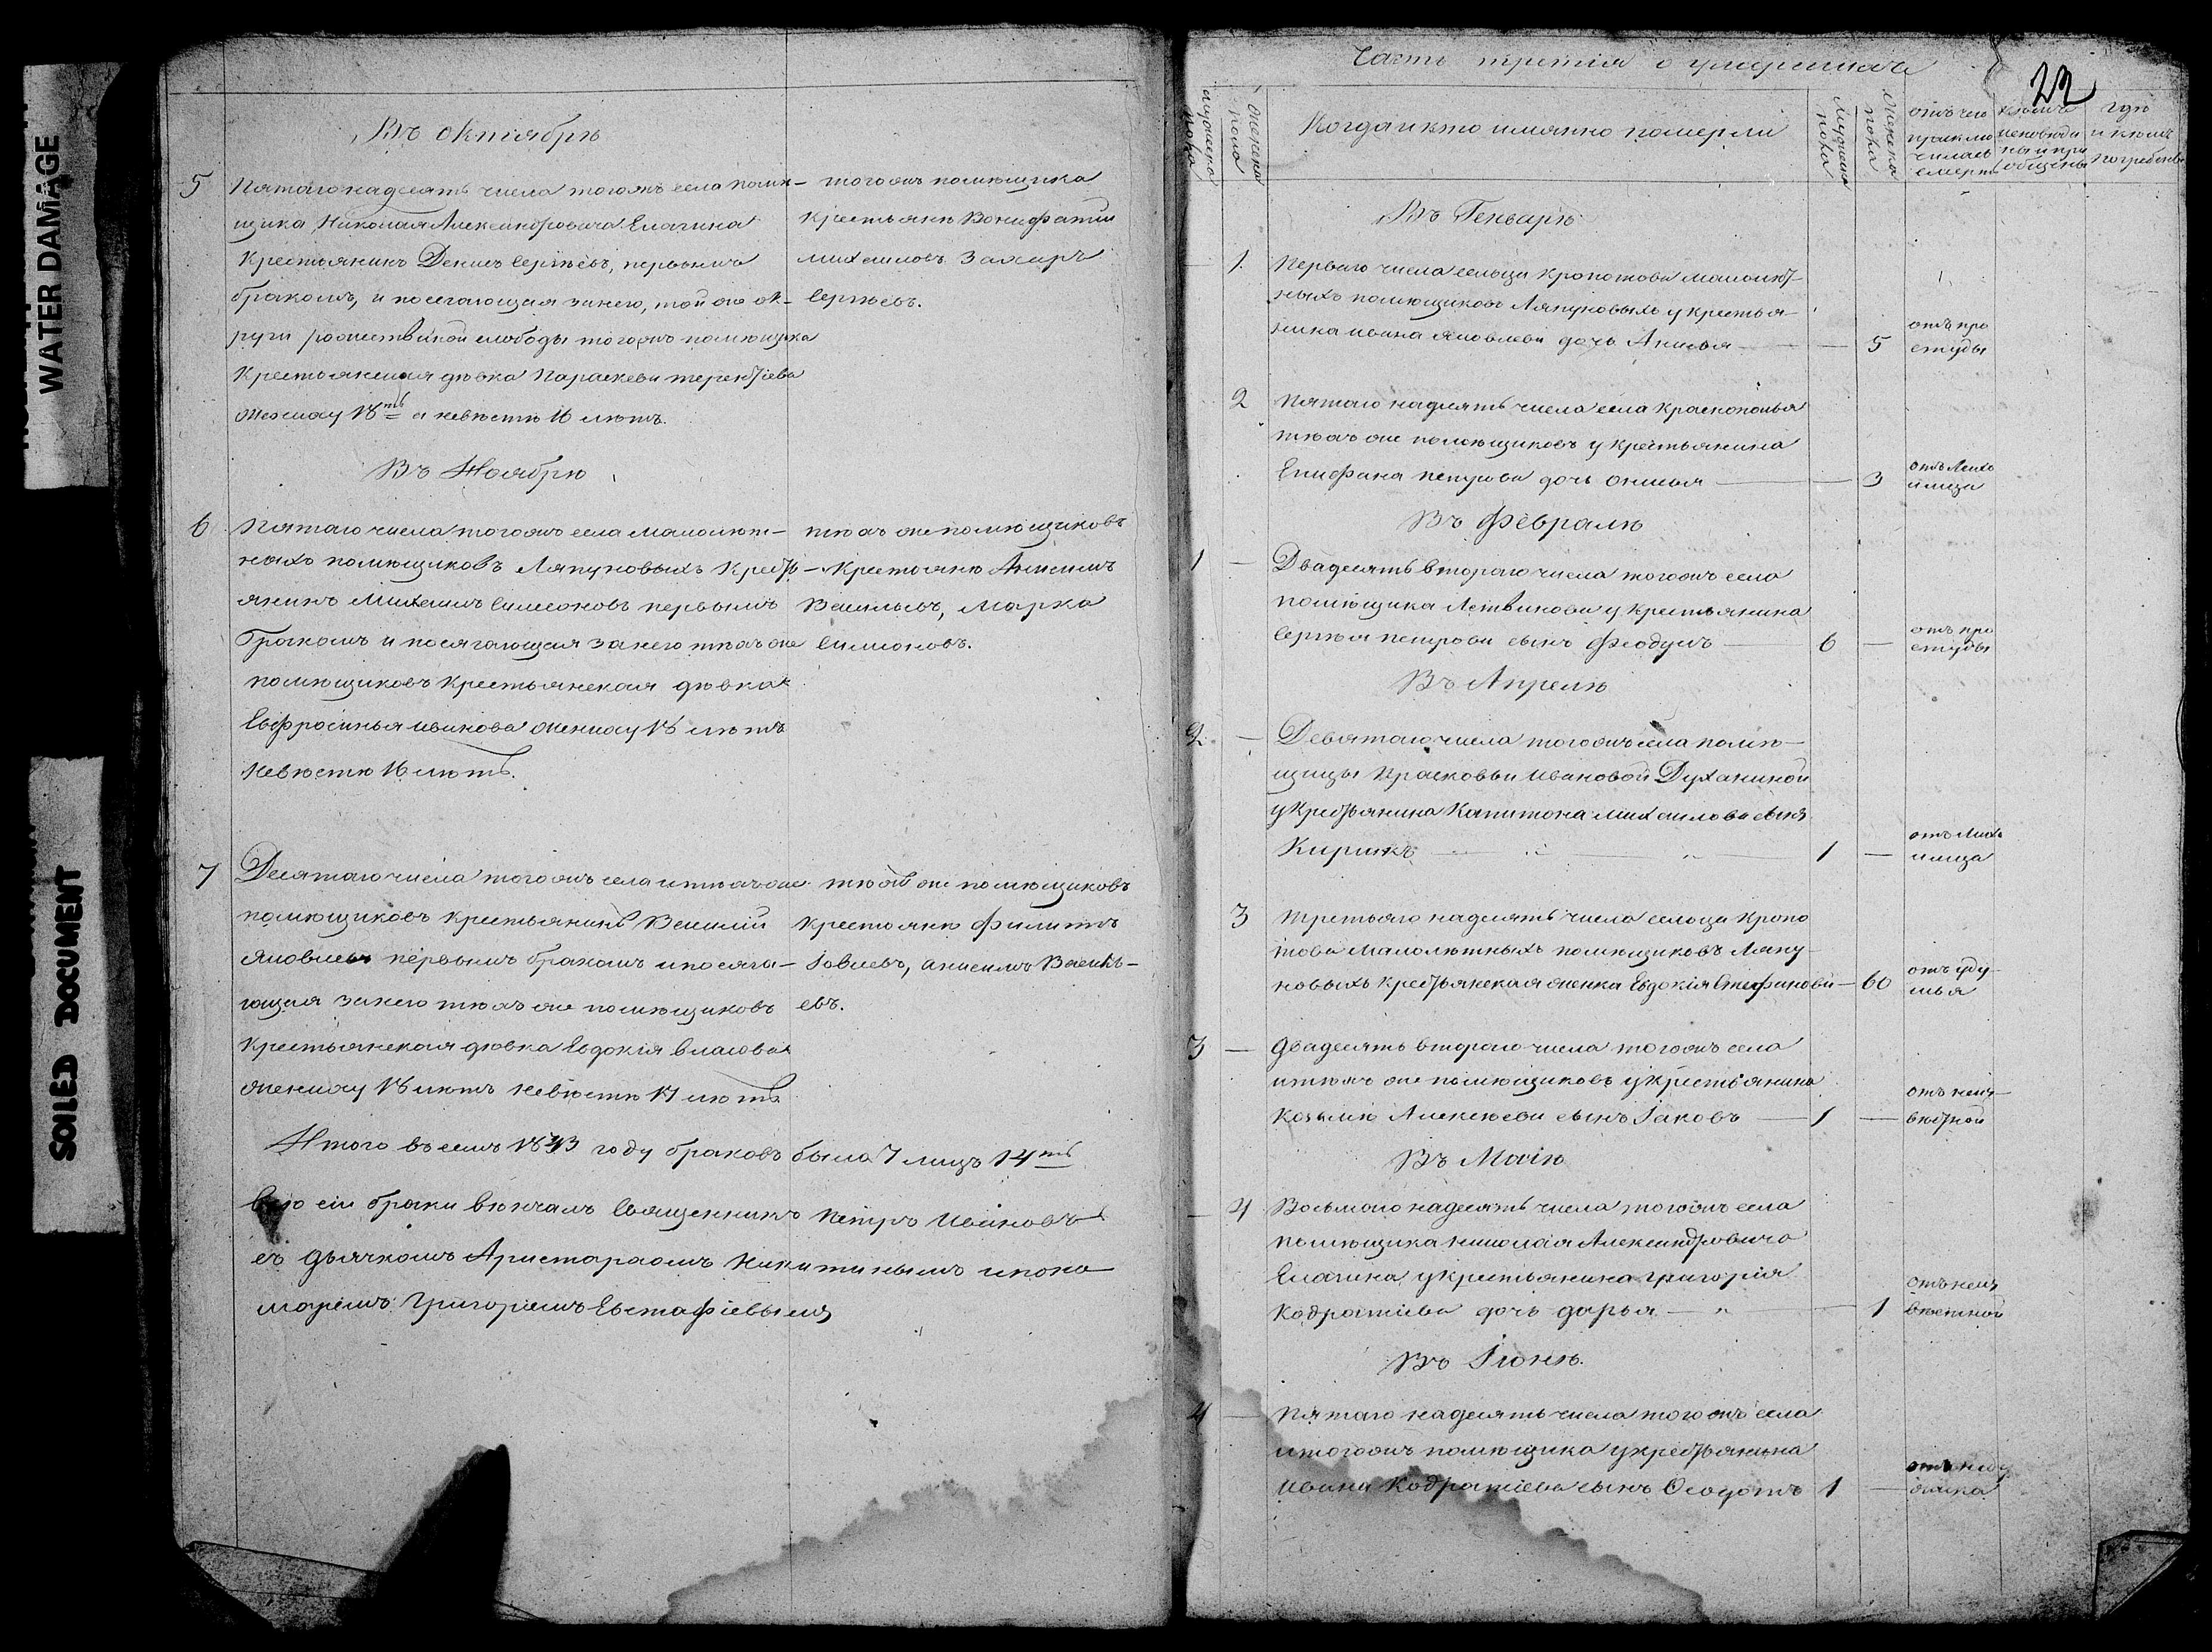 WATER DAMAGE
SOILED DOCUMENT
Въ октябрѣ
5 Пятагонадесять числа тогожъ села помѣ-
щика Николая Александровича Елагина
Крестьянинъ Денисъ Сергѣевъ, первымъ
бракомъ, и посягающая занего, той же ок-
руги рожественской слободы тогожъ помѣщика
Крестьянская дѣвка Параскева терентiева
жениху 18ть а невѣстѣ 16 лѣтъ.
тогожъ помѣщика
крестьяне Вонифатiй
михаиловъ Захаръ
Сергѣевъ.
Въ Ноябрѣ
6 Пятаго числа тогожъ села малолѣт-
ныхъ помѣщиковъ Ляпуновыхъ Кресть-
янинъ Михаилъ Симеоновъ первымъ
бракомъ и посягающая занего тѣхъ же
помѣщиковъ крестьянская дѣвка
Евфросинья иванова жениху 18 лѣтъ
невѣстѣ 16 лѣтъ.
тѣхъ же помѣщиковъ
Крестьяне Анисимъ
Васильевъ, Марка
Симионовъ.
7 Десятаго числа тогожъ села и тѣхъ же
помѣщиковъ крестьянинъ Василий
Яковлевъ первымъ бракомъ и посяга-
ющая занего тѣхъ же помѣщиковъ
крестьянская дѣвка Евдокiя власова
жениху 18 лѣтъ невѣстѣ 17 лѣтъ.
тѣхъ же помѣщиковъ
крестьяне Филиппъ
Iовлевъ, анисимъ Василь-
евъ.
Итого въ семъ 1843 году браковъ было 7 лицъ 14ть
Всѣ сiи браки вѣнчалъ Священникъ Петръ Ивановъ
съ дьячкомъ Аристархомъ Никитинымъ и поно
маремъ Григорiемъ Евстафiевымъ
Часть третiя о умершихъ
22
мужеска пола
женска пола
Когда и кто имянно померли
мужеска пола
женска пола
отъ чего приключилась смерть
кѣмъ исповѣданы и прiобщены
гдѣ и кѣмъ погребены
Въ Генварѣ
1. Перваго числа сельца Кропотова малолѣт-
ныхъ помѣщиковъ Ляпуновыхъ у крестья-
нина ивана яковлева дочь Анисья — — 5 отъ про
студы
2 Пятаго надесять числа села Краснополья
тѣхъ же помѣщиковъ у крестьянина
Епифана петрова дочь Анисья — — 3 отъ Лихо
имца
Въ Февралѣ
1 — Двадесять втораго числа тогожъ села
помѣщика Летвинова у крестьянина
Сергѣя петрова сынъ Феодулъ — 6 — отъ про
студы
Въ Апрелѣ
2 — Девятаго числа тогожъ села помѣ-
щицы Прасковьи Ивановой Духаниной
у Крестьянина Капитона михаилова сынъ
Кирикъ — 1 — отъ лихо
имца
3 третьяго надесять числа сельца Кропо
това малолѣтныхъ помѣщиковъ Ляпу-
новыхъ крестьянская женка Евдокiя Стефанова — 60 отъ уду-
шья
3 — двадесять втораго числа тогожъ села
и тѣхъ же помѣщиковъ у крестьянина
Козьмы Алексѣева сынъ Iаковъ — 1 — отъ неиз-
вѣстной
Въ Маiѣ
4 Восьмого надесять числа тогожъ села
помѣщика Николая Александровича
Елагина у крестьянина григорiя
Кодратiева дочь дарья — — 1 отъ неиз
вѣстной
Въ Iюнѣ.
4 — Пятаго надесять числа тогожъ села
и тогожъ помѣщика у крестьянина
Ивана Кодратiева сынъ Феодотъ 1 —